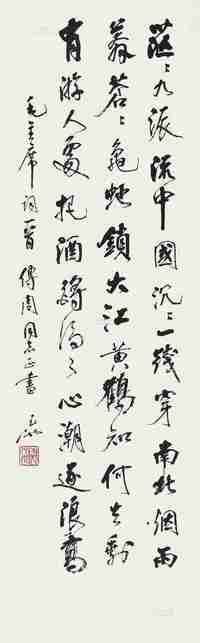 茫〻九派流中國沉〻一綫穿南北烟雨
莽蒼〻龜蛇鎖大江黃鶴知何去剩
有游人處把酒酹滔〻心潮逐浪高
毛主席詞一首 傅周同志正書